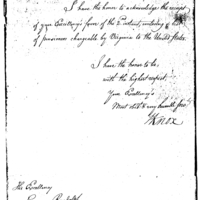 I have the honor to acknowledge the receipt
of your Excellency's favor of the 2 instant, inclosing a list
of pensioners chargeable by Virginia to the United States
I have the honor to be,
with the highest respect,
Your Excellency's
Most obt & very humble Servt
HKnox
His Excellency